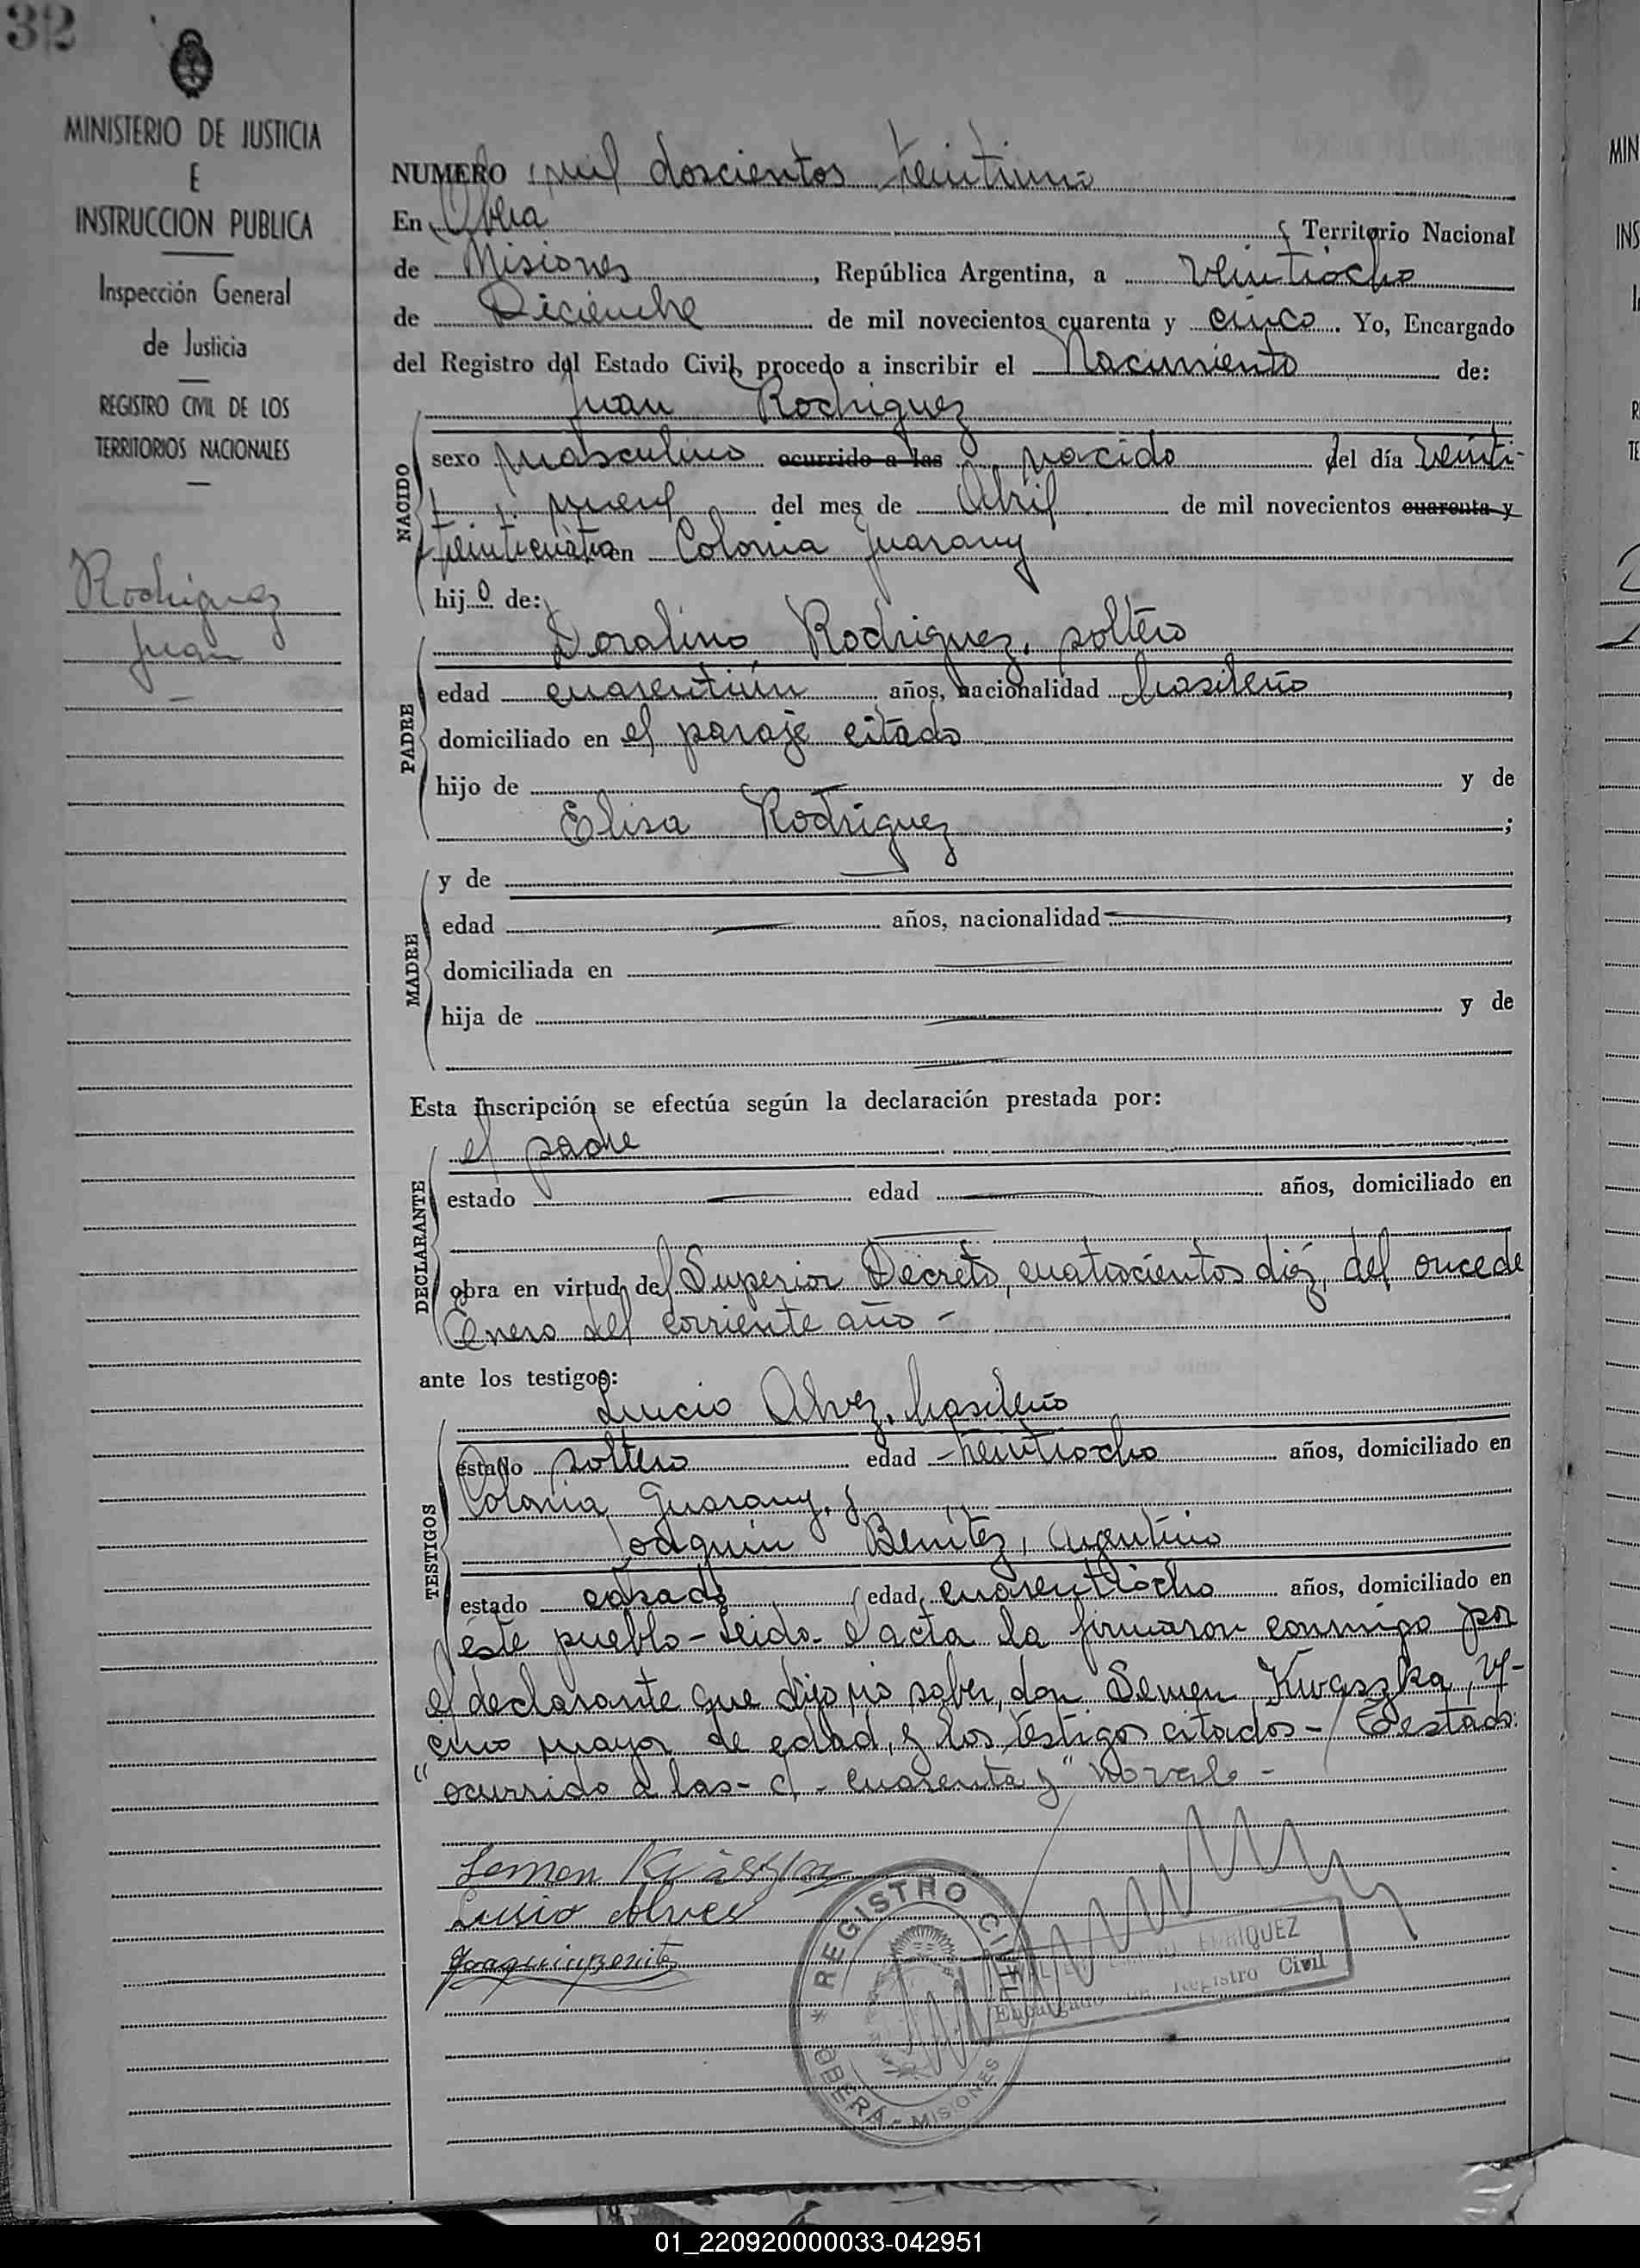 32
MINISTERIO DE JUSTICIA
E
INSTRUCCION PUBLICA
Inspección General
de Justicia
REGISTRO CIVIL DE LOS
TERRITORIOS NACIONALES
Rodriguez
Juan
NUMERO mil doscientos treintiuno
En Obera Territorio Nacional
de Misiones, República Argentina, a veintiocho
de Diciembre de mil novecientos cuarenta y cinco. Yo, Encargado
del Registro del Estado Civil, procedo a inscribir el Nacimiento de:
Juan Rodriguez
NACIDO
sexo masculino ocurrido a las nacido del día veinti-
nueve del mes de Abril de mil novecientos cuarenta y
treinticuatro en Colonia Guarany
hijo de:
Doralino Rodriguez, soltero
PADRE
edad cuarentiún años, nacionalidad brasileño,
domiciliado en el paraje citado
hijo de y de
Elisa Rodriguez;
MADRE
y de
edad años, nacionalidad,
domiciliada en
hija de y de
Esta inscripción se efectúa según la declaración prestada por:
el padre
DECLARANTE
estado edad años, domiciliado en
obra en virtud del Superior Decreto, cuatrocientos diez, del once de
Enero del corriente año -
ante los testigos:
Lucio Alvez, brasileño
TESTIGOS
estado soltero edad treintiocho años, domiciliado en
Colonia Guarany, y
Joaquin Benitez, argentino
estado casado edad cuarentiocho años, domiciliado en
éste pueblo - Leida el acta la firmaron conmigo por
el declarante que dijo no saber, don Semen Kwaszka, ve-
cino mayor de edad, y los testigos citados - Testado:
"ocurrido a las - cuarenta y" no vale -
Semen Kwaszka
Lusio Alves
Joaquin Benites
REGISTRO CIVIL
OBERÁ - MISIONES
ENRIQUEZ
Encargado del Registro Civil
MIN
INS
01_220920000033-042951